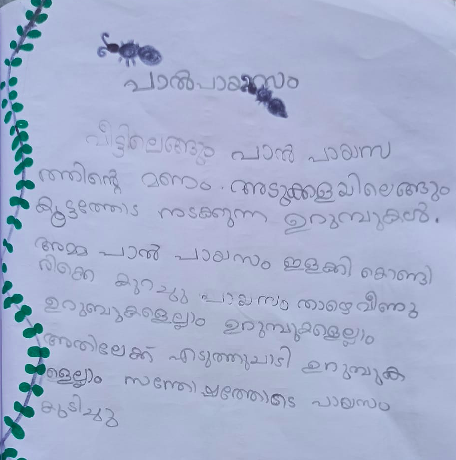 പാൽപായസം
വീട്ടിലെങ്ങും പാൽ പായസ
ത്തിൻ്റെ മണം. അടുക്കളയിലെങ്ങും
കൂട്ടത്തോട നടക്കുന്ന ഉറുമ്പുകൾ.
അമ്മ പാൽ പായസം ഇളക്കി കൊണ്ടി
രിക്കെ കുറച്ചു പായസം താഴെവീണു
ഉറുമ്പുകളെല്ലാം ഉറുമ്പുകളെല്ലാം
അതിലേക്ക് എടുത്തുചാടി ഉറുമ്പുക
ളെല്ലാം സന്തോഷത്തോടെ പായസം
കുടിച്ചു